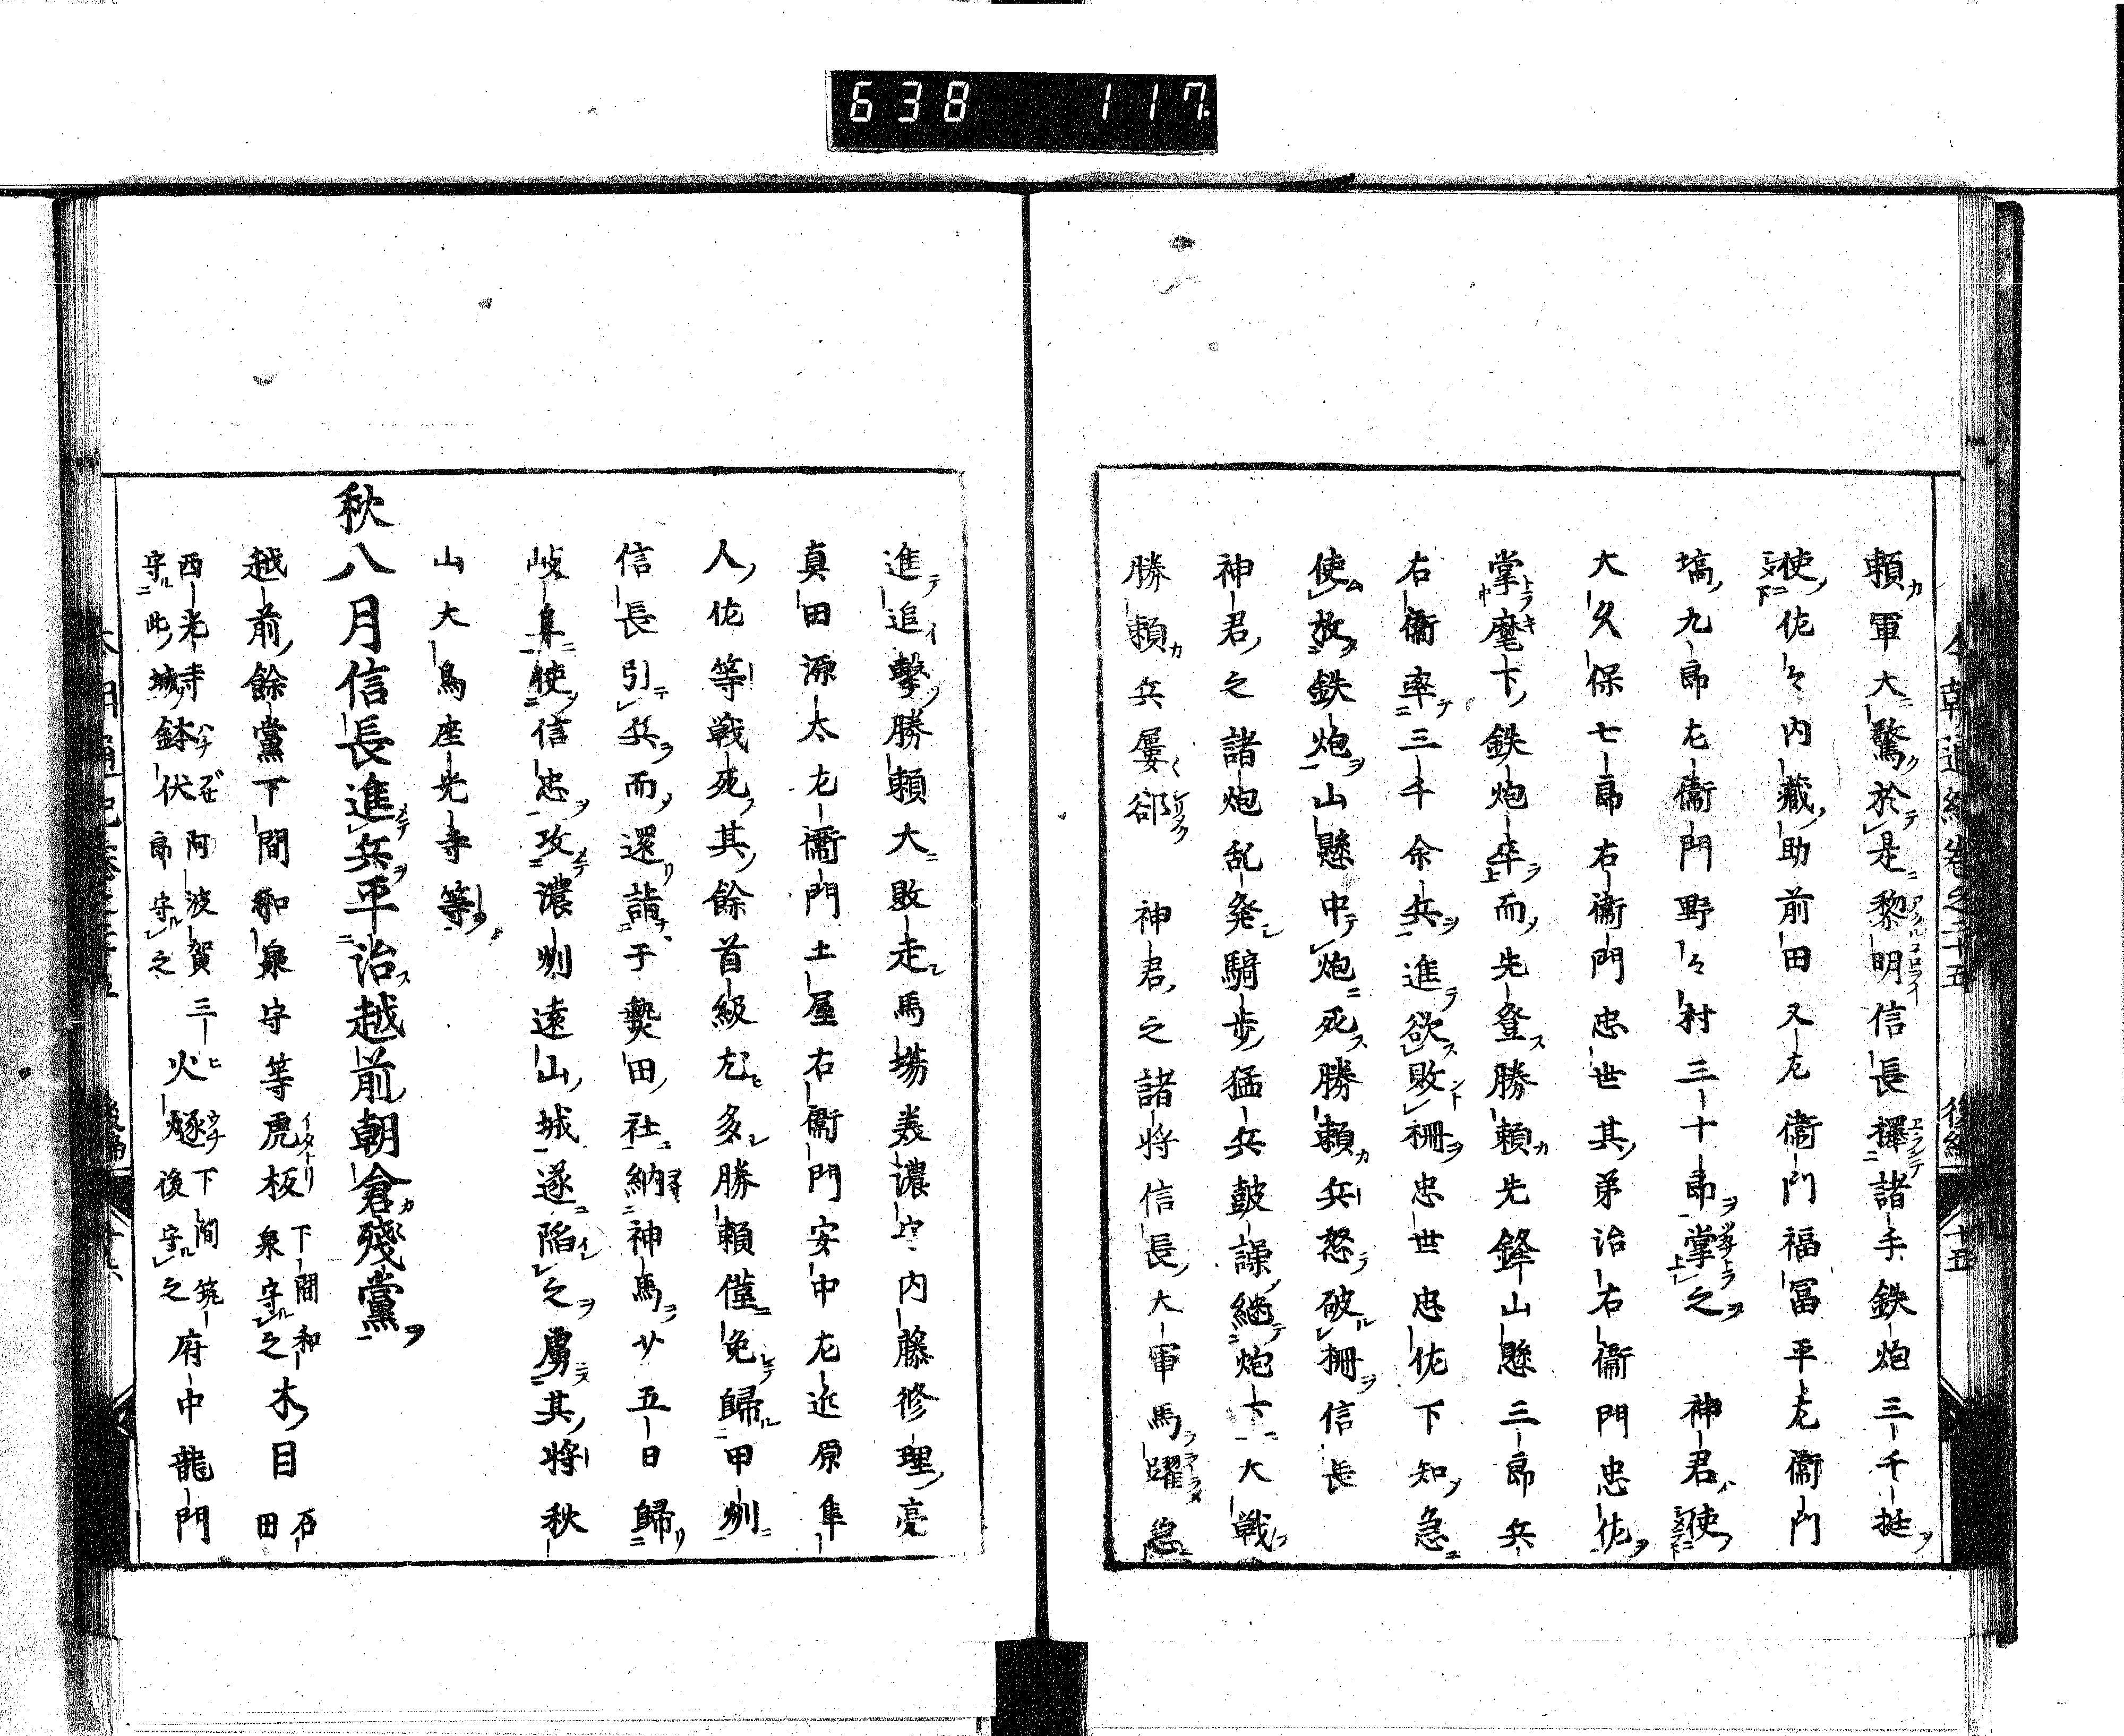 638 117
本朝通紀卷之二十五 後編 十五
頼軍大驚於是黎明信長擇諸手鉄炮三千挺
使佐々内藏助前田又左衞門福冨平左衞門
塙九郎左衞門野々村三十郎掌之 神君使
大久保七郎右衞門忠世其弟治右衞門忠佐
掌麾下鉄炮卒而先登勝頼先鋒山懸三郎兵
右衞率三千余兵進欲敗柵忠世忠佐下知急
使放鉄炮山懸中炮死勝頼兵怒破柵信長
神君之諸炮乱発騎歩猛兵鼓譟継炮士大戦
勝頼兵屢郤 神君之諸将信長大軍馬躍急
進追擊勝頼大敗走馬場美濃守内藤修理亮
真田源太左衞門土屋右衞門安中左近原隼
人佐等戦死其餘首級尤多勝頼僅免歸甲州
信長引兵而還詣于𤍠田社納神馬廿五日歸
岐阜使信忠攻濃州遠山城遂陷之虜其將秋
山大嶌座光寺等
秋八月信長進兵平治越前朝倉殘黨
越前餘黨下間和泉守等虎板下間和泉守守之木目石田
西光寺守此城鉢伏阿波賀三郎守之火燧下間筑後守之府中龍門